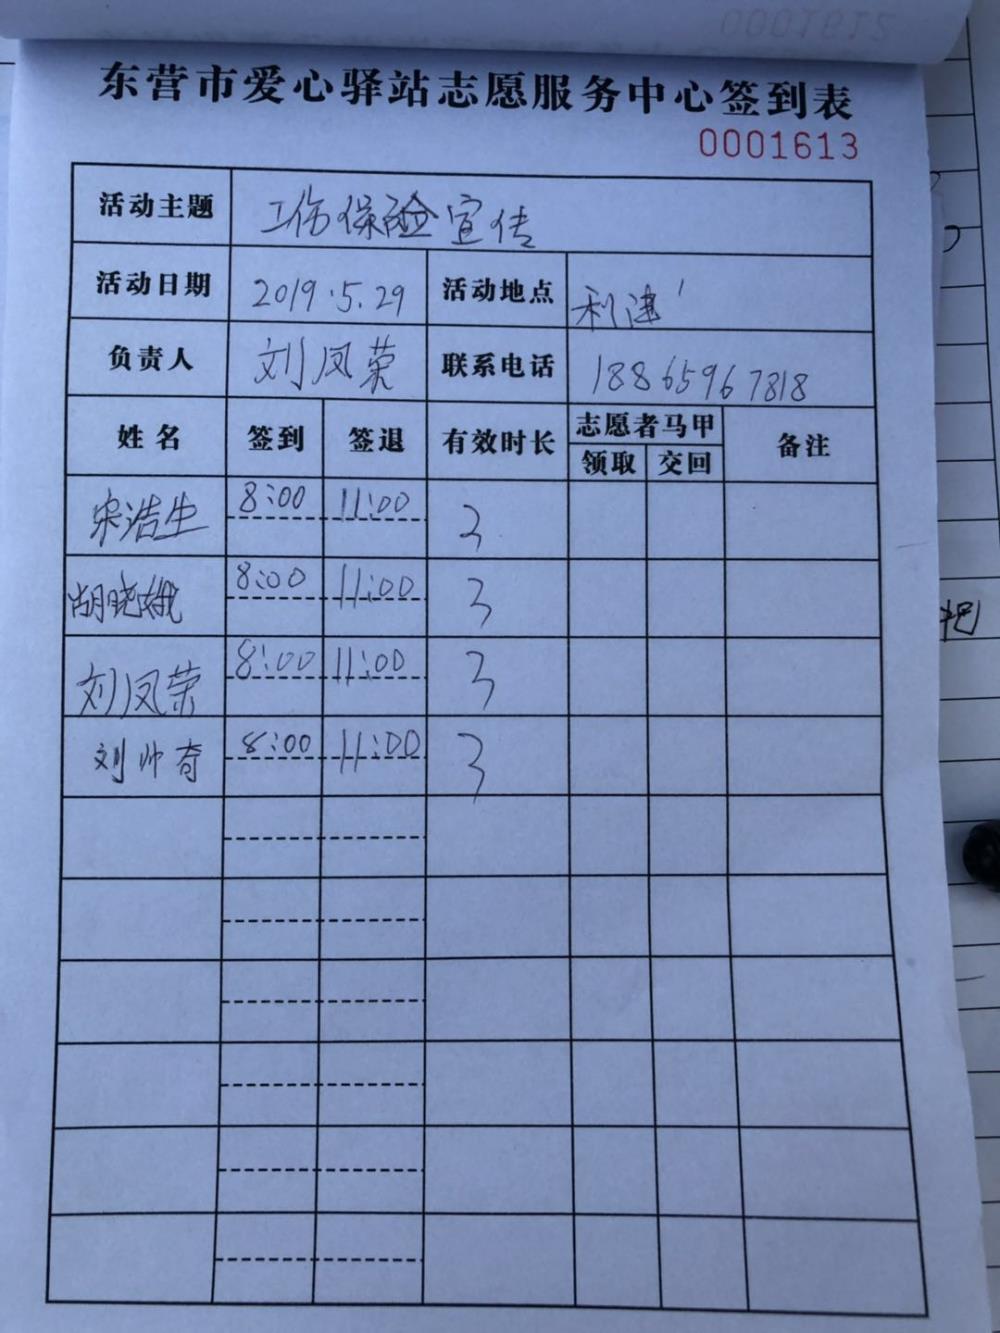 东营市爱心驿站志愿服务中心签到表
0001613
活动主题 工伤保险宣传
活动日期 2019.5.29 活动地点 利津
负责人 刘凤荣 联系电话 18865967818
姓名 签到 签退 有效时长 志愿者马甲 备注
领取 交回
宋浩生 8:00 11:00 3
胡晓娥 8:00 11:00 3
刘凤荣 8:00 11:00 3
刘帅奇 8:00 11:00 3